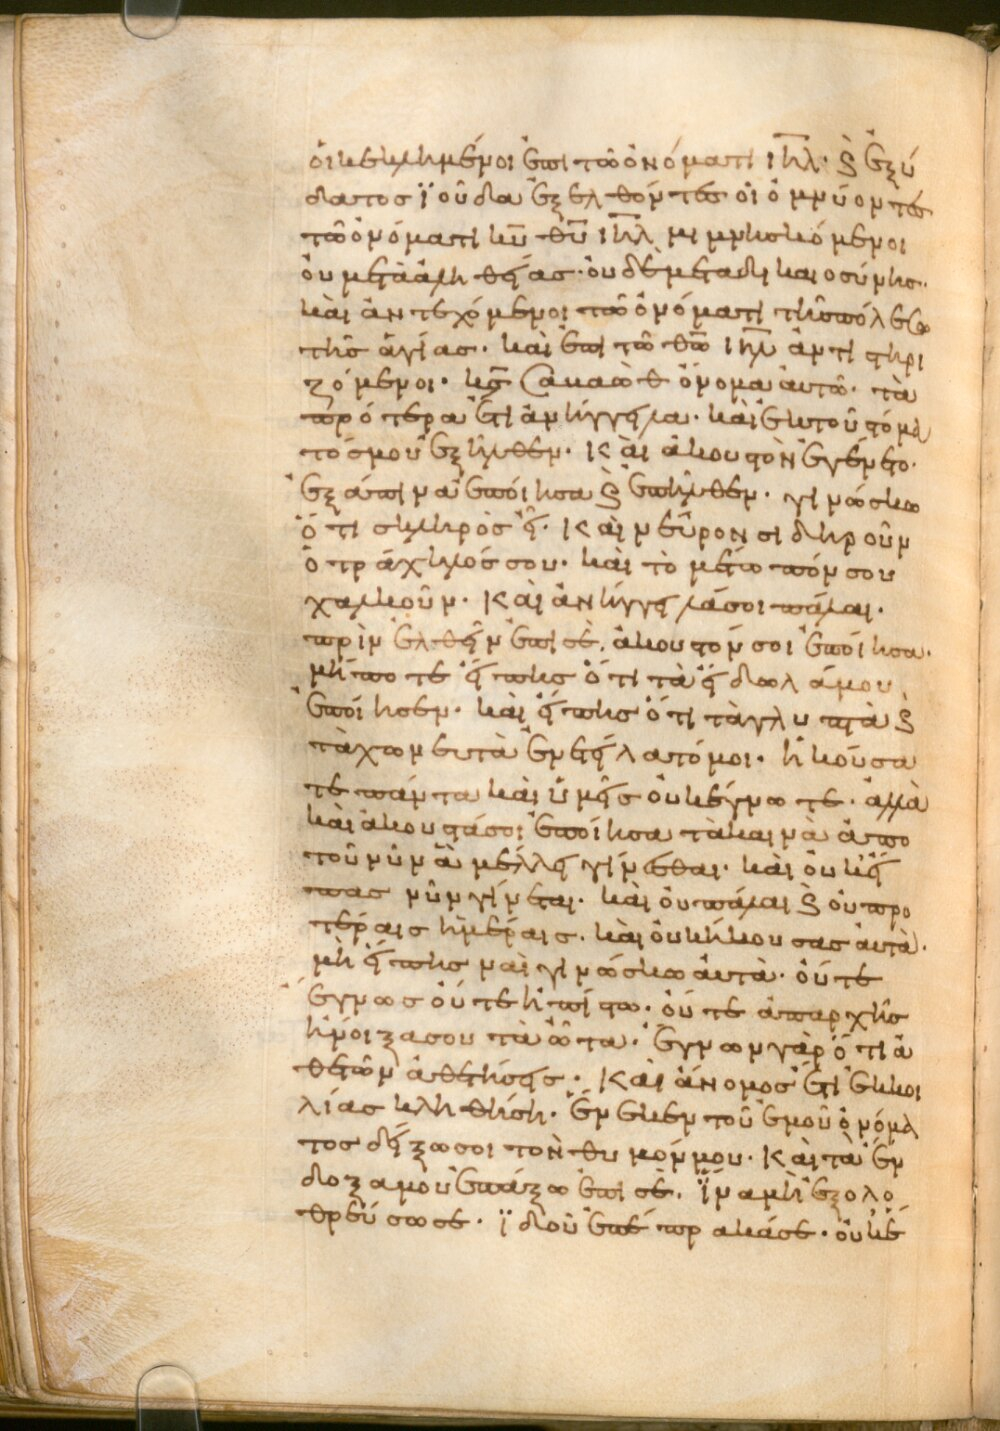 οἱ κεκλημένοι ἐπι τῶ ὀνόματι ιηλ· ϗ ἐξ ὕ
δατος ϊούδα ἐξελθόντες οἱ ὀμνύοντες
τῶ ὀνόματι κυ θυ ιηλ μιμνησκόμενοι
ὀυ μετὰ ἀληθείας· ὀυδὲ μετα δικαιοσύνης·
καὶ ἀντεχόμενοι τῶ ὀνόματι τῆς πόλεως
τῆς ἁγίας· καὶ ἐπι τῶ θω ιηλ ἀντιστηρι
ζόμενοι· κς Σαβαὼθ ὄνομα ἀυτῶ· τὰ
πρότερα ἔτι ἀνήγγειλα· καὶ ἐκ τοῦ στόμα
τός μου ἐξῆλθεν· Καὶ ἀκουστὸν ἐγένετο·
ἐξάπινα ἐποίησα ϗ ἐπῆλθεν· γινώσκω
ὅτι σκληρὸς εἶ· Καὶ νεῦρον σιδηροῦν
ὁ τράχηλός σου· καὶ τὸ μέτωπόν σου
χαλκοῦν· Καὶ ἀνήγγειλά σοι πάλαι·
πρὶν ἐλθεῖν ἐπι σὲ. ἀκουστόν σοι ἐποίησα·
μήποτε εἴπης ὅτι τὰ εἴδωλά μου
ἐποίησεν· καὶ εἴπης ὅτι τὰ γλυπτὰ ϗ
τὰ χωνευτὰ ἐνετείλατό μοι· ἠκούσα
τε πάντα καὶ ὑμεῖς ὀυκ ἔγνωτε· ἀλλὰ
καὶ ἀκουστά σοι ἐποίησα τὰ καινὰ ἀπο
τοῦ νῦν ἃ μέλλει γίνεσθαι· καὶ ὀυκ εἶ
πας νῦν γίνεται· καὶ ὀυ πάλαι ϗ ὀυ προ
τέραις ἡμέραις· καὶ ὀυκ ἤκουσας ἀυτὰ·
μὴ εἴπης ναὶ γινώσκω ἀυτὰ· ὀύτε
ἔγνως ὀύτε ἠπίστω· ὀύτε ἀπαρχῆς
ἤνοιξα σου τὰ ὦτα· ἔγνων γὰρ ὅτι ἀ
θετῶν ἀθετήσεις· Καὶ ἄνομος ἔτι ἐκ κοι
λίας κληθήση· ἕνεκεν τοῦ ἐμοῦ ὀνόμα
τος δείξω σοι τὸν θυμόν μου· Καὶ τὰ ἔν
δοξα μου ἐπάξω ἐπι σὲ. ἵνα μὴ ἐξολο
θρεύσω σε· ϊδοὺ πέπρακά σε· ὀυκ ἕ